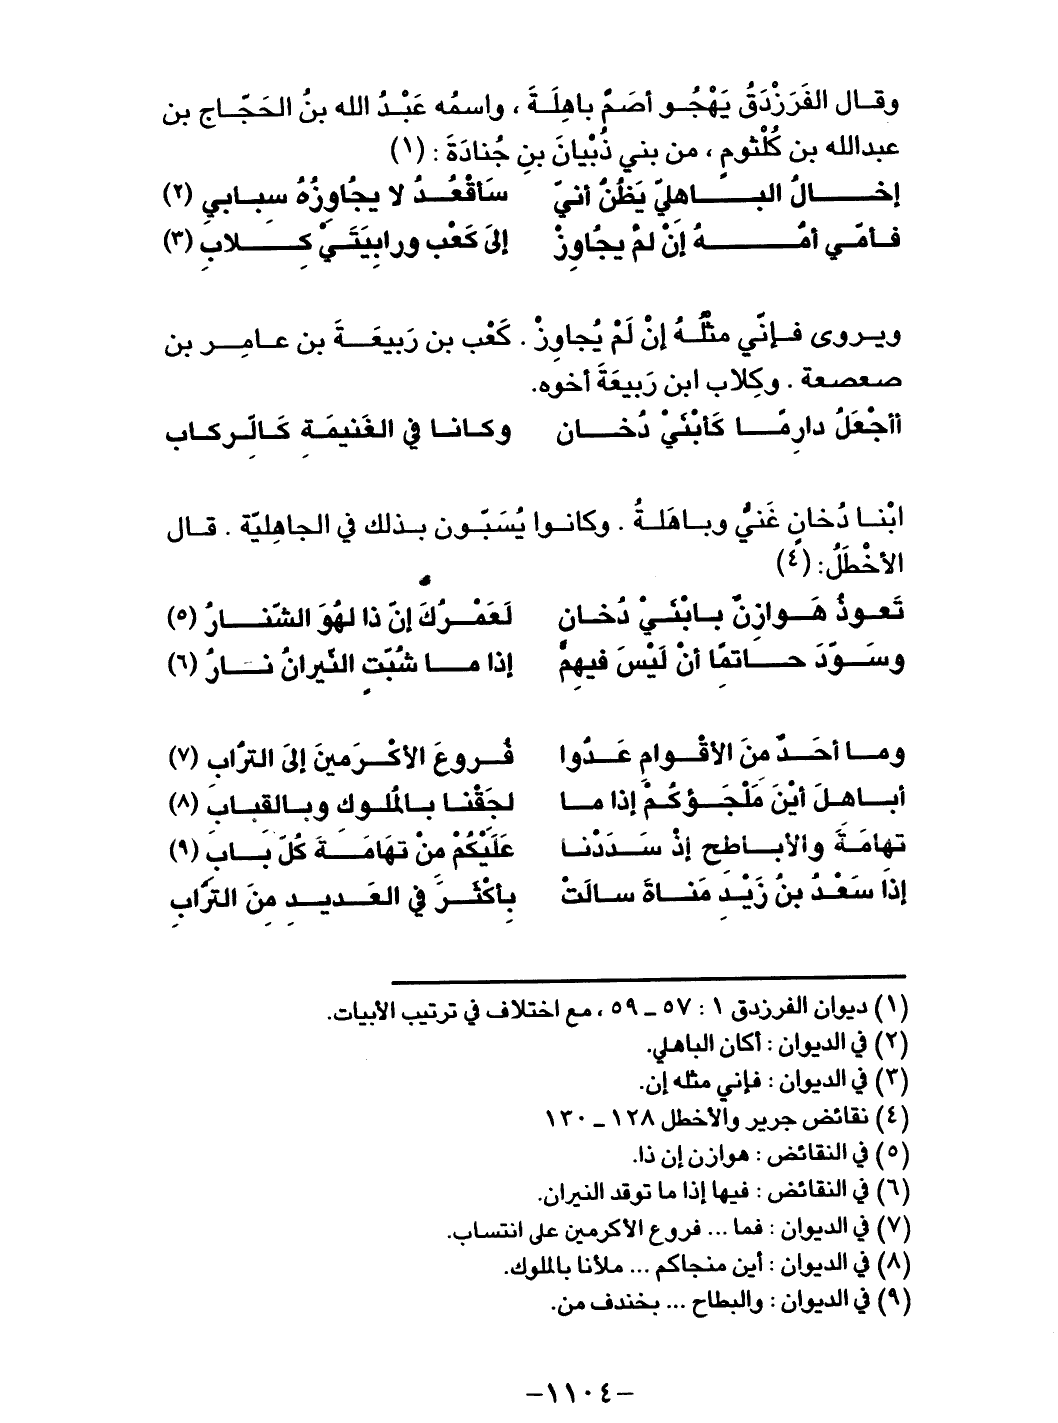 وقال الفَرَزْدَقُ يَهْجُو أصَمَّ باهِلَةَ ، واسمُه عَبْدُ الله بنُ الحَجّاج بن
عبدالله بن كُلْثومٍ ، من بني ذُبْيانَ بنِ جُنادَةَ : (١)
إخالُ الباهليّ يَظُنُّ أنيّ سَأقْعُدُ لا يجُاوِزُهُ سِبابي (٢)
فأمّي أمُّهُ إنْ لمْ يجُاوِزْ إلىَ كَعْبٍ ورابِيَتَيْ كِلابِ (٣)
ويروى فإنّي مثْلُهُ إنْ لَمْ يُجاوِزْ . كَعْب بن رَبيعَةَ بن عامِرِ بن
صعصعة . وكِلاب ابن رَبيعَةَ أخوه.
أأجْعَلُ دارِمًا كَأبْنَيْ دُخانٍ وكانا في الغَنيمَةِ كَالّرِكابِ
ابْنا دُخانٍ غَنيُّ وباهَلةُ . وكانوا يُسَبّون بذلك في الجاهِليّة . قال
الأخْطَلُ: (٤)
تَعوذُ هَوازِنٌ بابْنَيْ دُخانٍ لَعَمْرُكَ إنّ ذا لهُوَ الشّنارُ (٥)
وسَوّدَ حاتمًا أنْ لَيْسَ فيهِمْ إذا ما شُبّتِ النّيرانُ نارُ (٦)
وما أحَدٌ منَ الأقْوامِ عَدُّوا فُروعَ الأكْرَمينَ إلىَ الترُّابِ (٧)
أباهلَ أيْنَ مَلْجَؤكُمْ إذا ما لحِقْنا بالمُلوك وبالقباب (٨)
تهامَةَ والأباطح إذْ سَدَدْنا عَلَيْكُمْ منْ تهَامَةَ كُلّ بابِ (٩)
إذَا سَعْدُ بنُ زَيْدِ مَناةَ سالَتْ بأكْثَرَ في العَديدِ مِنَ الترَّابِ
(١) ديوان الفرزدق ١ : ٥٧ ــ ٥٩ ، مع اختلاف في ترتيب الأبيات.
(٢) في الديوان : أكان الباهلي.
(٣) في الديوان : فإني مثله إن.
(٤) نقائض جرير والأخطل ١٢٨ ــ ١٣٠
(٥) في النقائض : هوازن إن ذا.
(٦) في النقائض : فيها إذا ما توقد النيران.
(٧) في الديوان : فما ... فروع الأكرمين على انتساب.
(٨) في الديوان : أين منجاكم ... ملأنا بالملوك.
(٩) في الديوان : والبطاح ... بخندف من.
–١١٠٤–